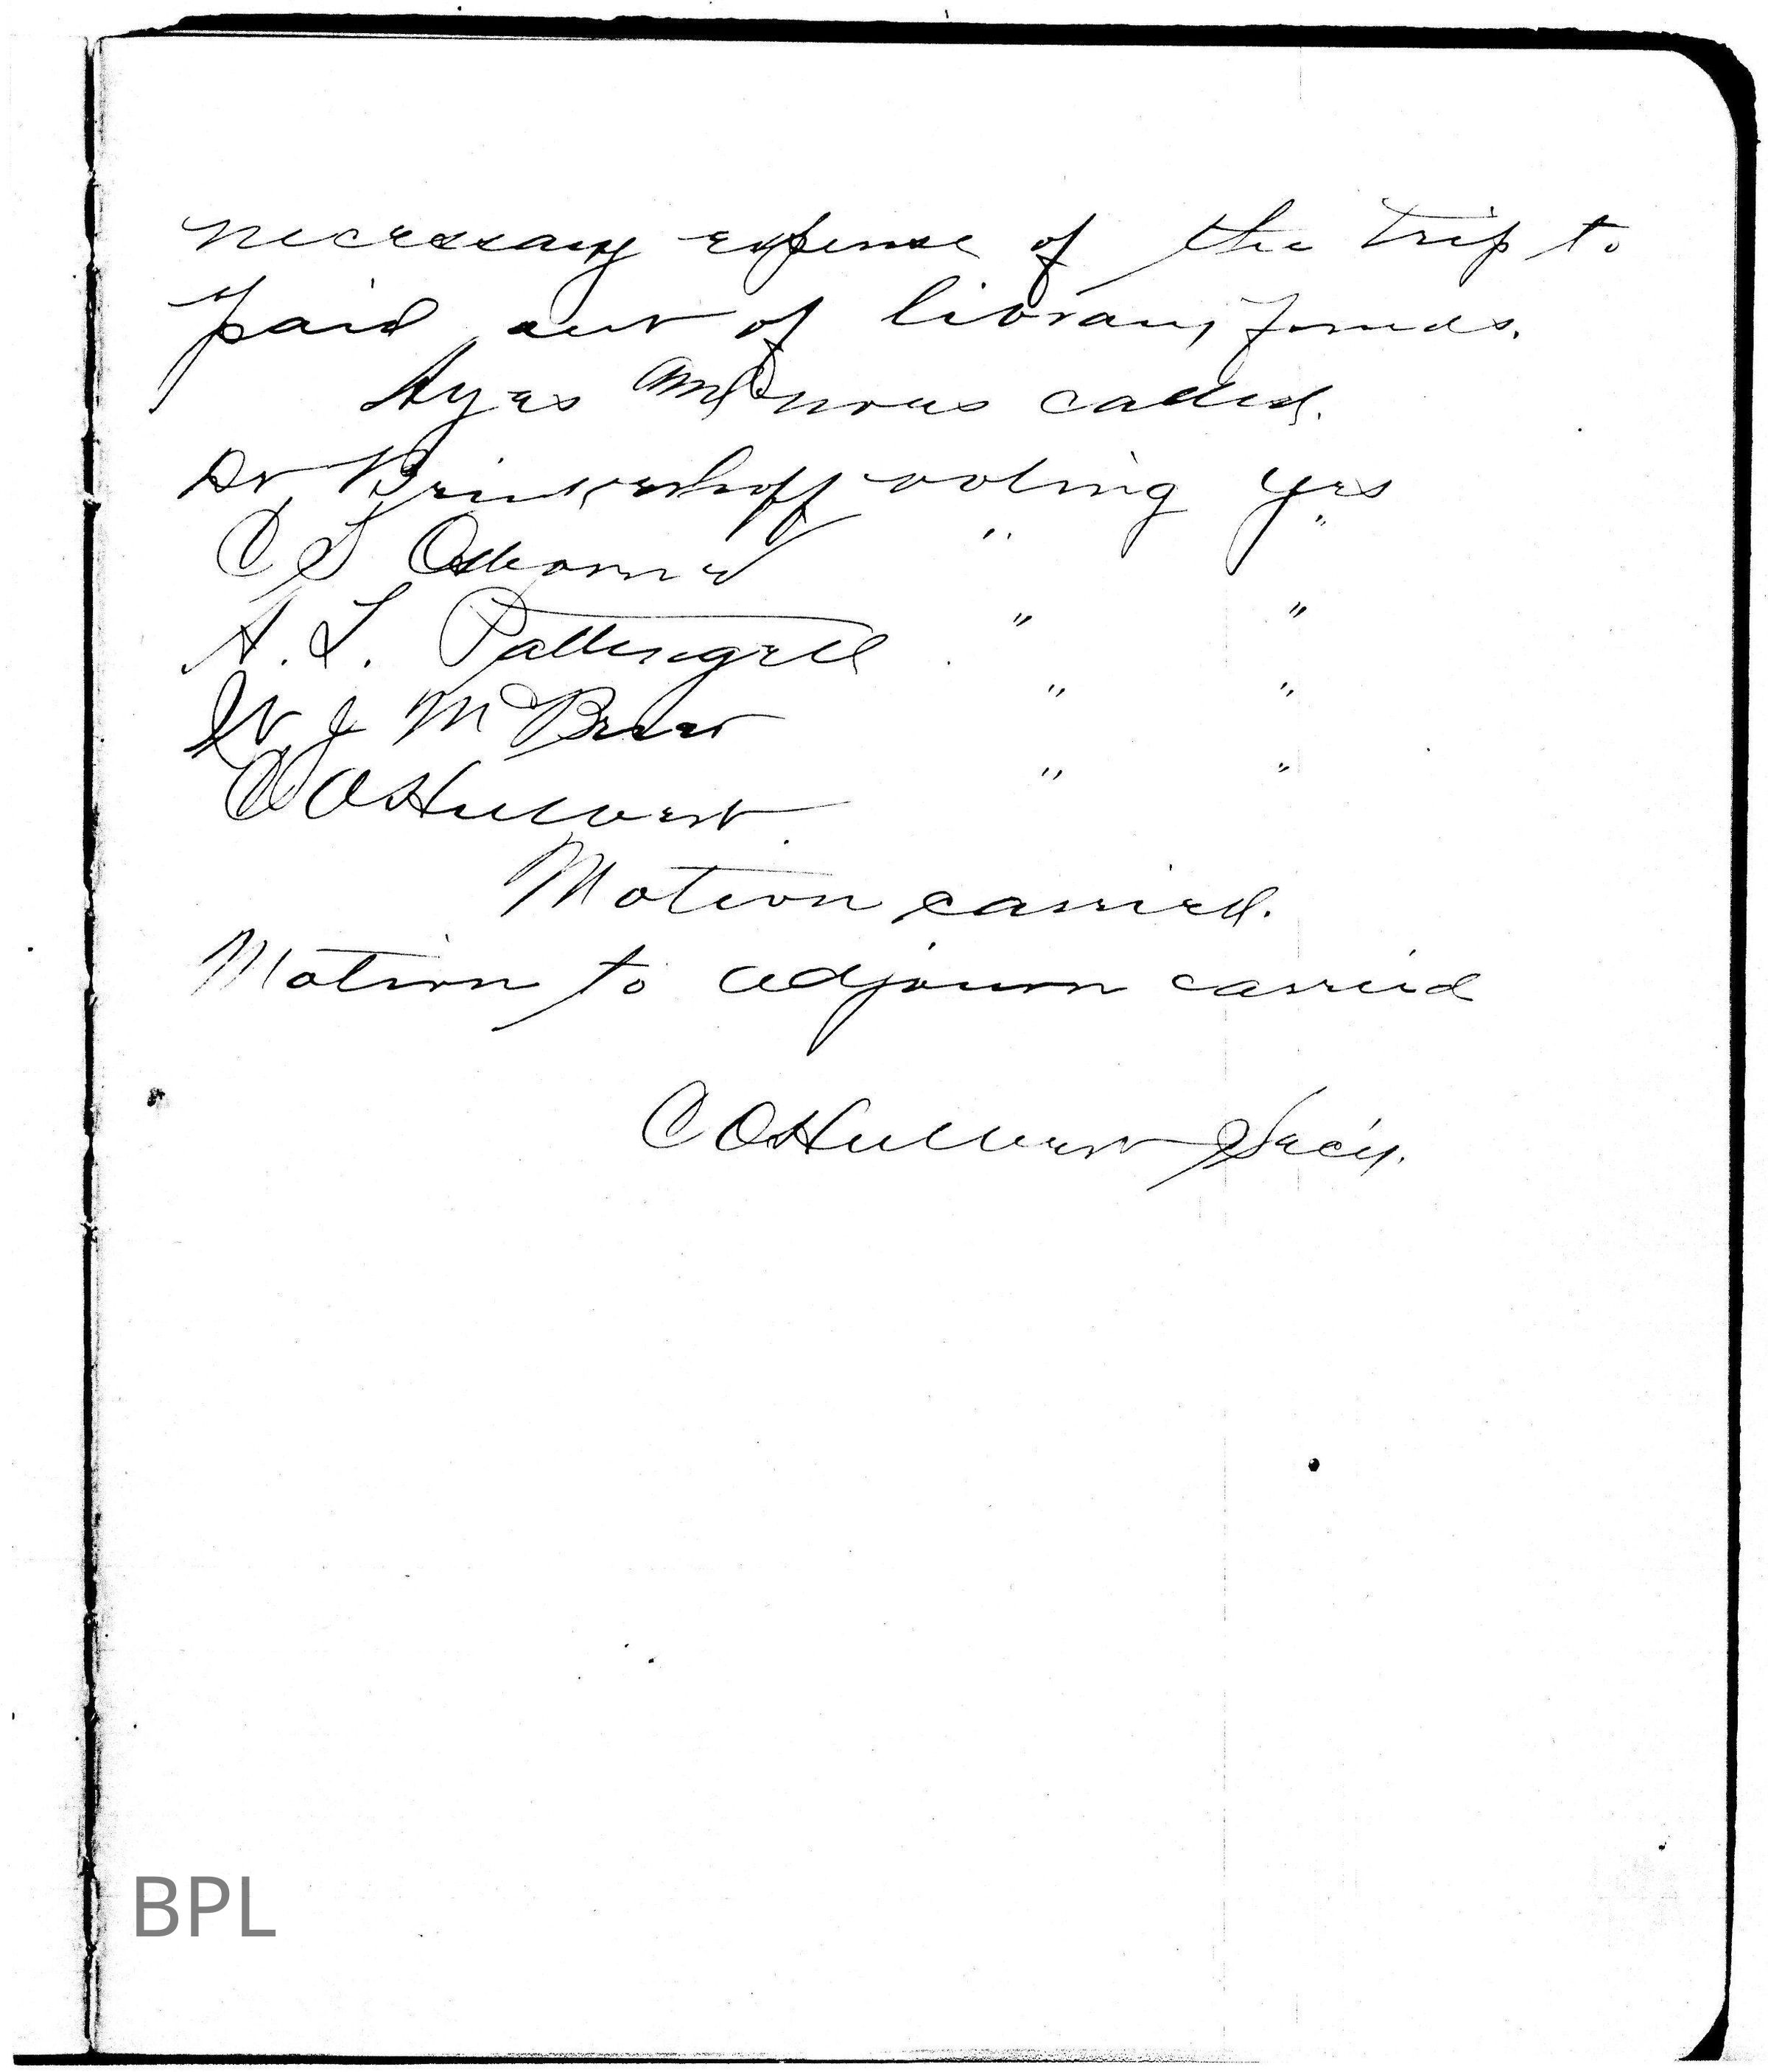 necessary expense of the trip to
paid out of library funds.
Ayes and noes called.
Dr Brinkerhoff voting yes
C S Osborne " "
A. L. Pattengill " "
W J M " "
C O Hulbert " "
Motion carried.
Motion to adjourn carried
C O Hulbert Secy.
BPL